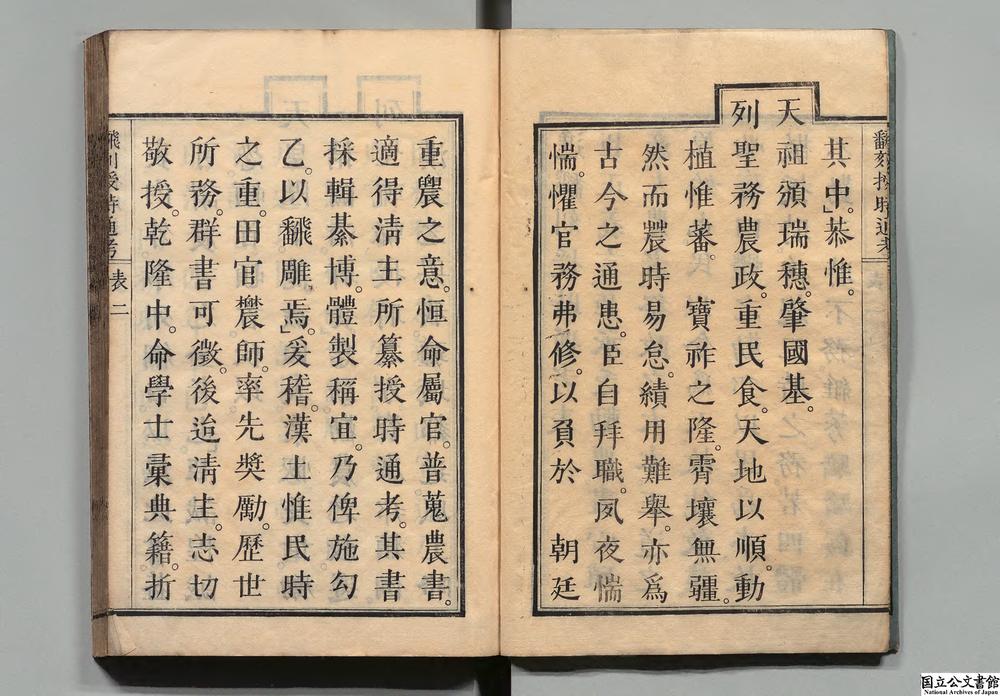 翻刻授時通考
其中。」恭惟。
天祖頒瑞穗。肇國基。
列聖務農政。重民食。天地以順。動
植惟蕃。 寶祚之隆。霄壤無疆。
然而農時易怠。績用難舉。亦爲
古今之通患。臣自拜職。夙夜惴
惴。懼官務弗修。以負於 朝廷
重農之意。恒命屬官。普蒐農書。
適得淸主所纂授時通考。其書
採輯綦博。體製稱宜。乃俾施勾
乙。以飜雕焉。」爰稽。漢土惟民時
之重。田官農師。率先奬勵。歷世
所務。群書可徵。後迨淸主。志切
敬授。乾隆中。命學士彙典籍。折
飜刻授時通考 表二
国立公文書館
National Archives of Japan